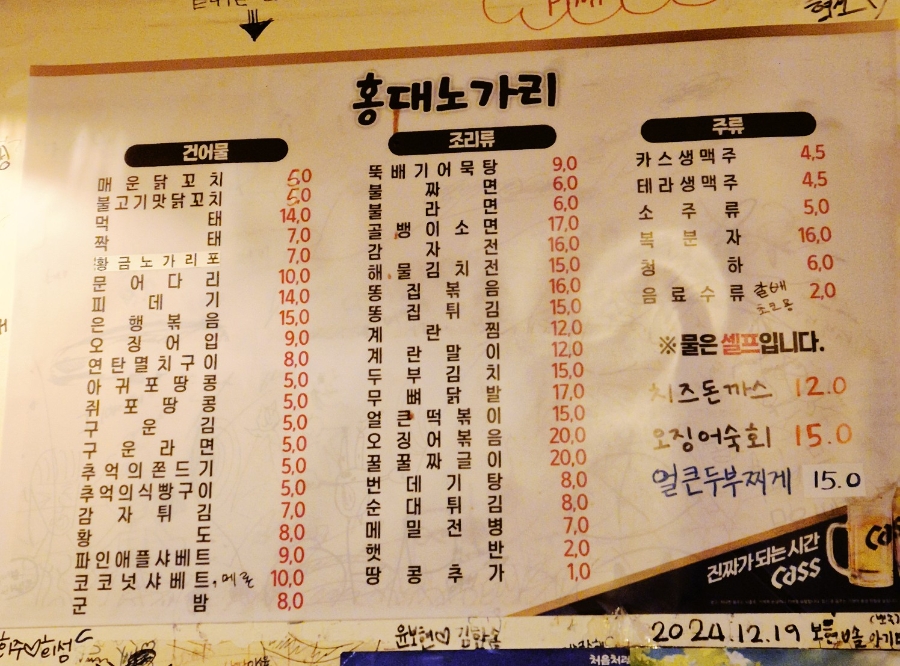 홍대노가리
건어물
매운닭꼬치 5,0
불고기맛닭꼬치 5,0
먹태 14,0
짝태 7,0
황금노가리포 7,0
문어다리 10,0
피데기 14,0
은행볶음 15,0
오징어입 9,0
연탄멸치구이 8,0
아귀포땅콩 5,0
쥐포땅콩 5,0
구운김 5,0
구운라면 5,0
추억의쫀드기 5,0
추억의식빵구이 5,0
감자튀김 7,0
황도 8,0
파인애플샤베트 9,0
코코넛샤베트,메론 10,0
군밤 8,0
조리류
뚝배기어묵탕 9,0
불짜면 6,0
불라면 6,0
골뱅이소면 17,0
감자전 16,0
해물김치전 15,0
똥집볶음 16,0
똥집튀김 15,0
계란찜 12,0
계란말이 12,0
두부김치 15,0
무뼈닭발 17,0
얼큰떡볶이 15,0
오징어볶음 20,0
꿀꿀짜글이 20,0
번데기탕 8,0
순대튀김 8,0
메밀전병 7,0
햇반 2,0
땅콩추가 1,0
주류
카스생맥주 4,5
테라생맥주 4,5
소주류 5,0
복분자 16,0
청하 6,0
음료수류 2,0
※물은 셀프입니다.
치즈돈까스 12.0
오징어숙회 15.0
얼큰두부찌게 15.0
진짜가 되는 시간
Cass
2024.12.19
처음처럼